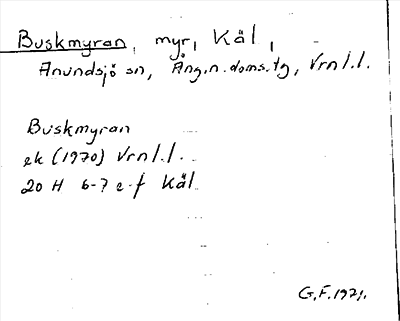 Buskmyran, myr, Käl,
Anundsjö sn, Ång.n.doms.tg, Vrnl.l.
Buskmyran
ek (1970) Vrnl.l.
20 H 6-7 e-f Käl
G.F. 1971.